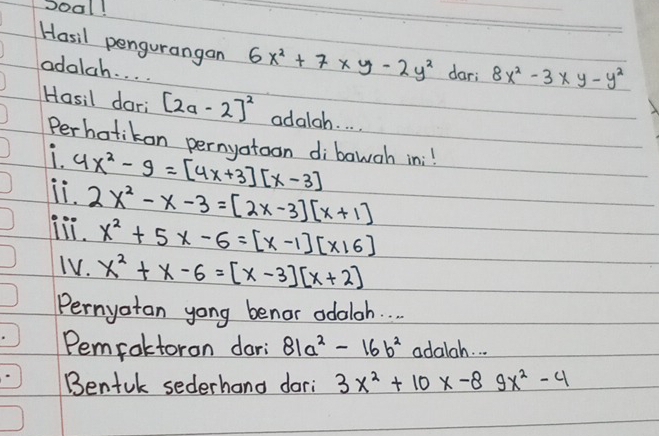 Soal!
Hasil pengurangan 6x² + 7xy - 2y² dari 8x² - 3xy - y²
adalah....
Hasil dari [2a - 2]² adalah....
Perhatikan pernyataan dibawah ini!
i. 4x² - 9 = [4x+3][x-3]
ii. 2x² - x - 3 = [2x-3][x+1]
iii. x² + 5x - 6 = [x-1][x+6]
IV. x² + x - 6 = [x-3][x+2]
Pernyatan yang benar adalah....
Pemfaktoran dari 81a² - 16b² adalah...
Bentuk sederhana dari 3x² + 10x - 8 9x² - 4